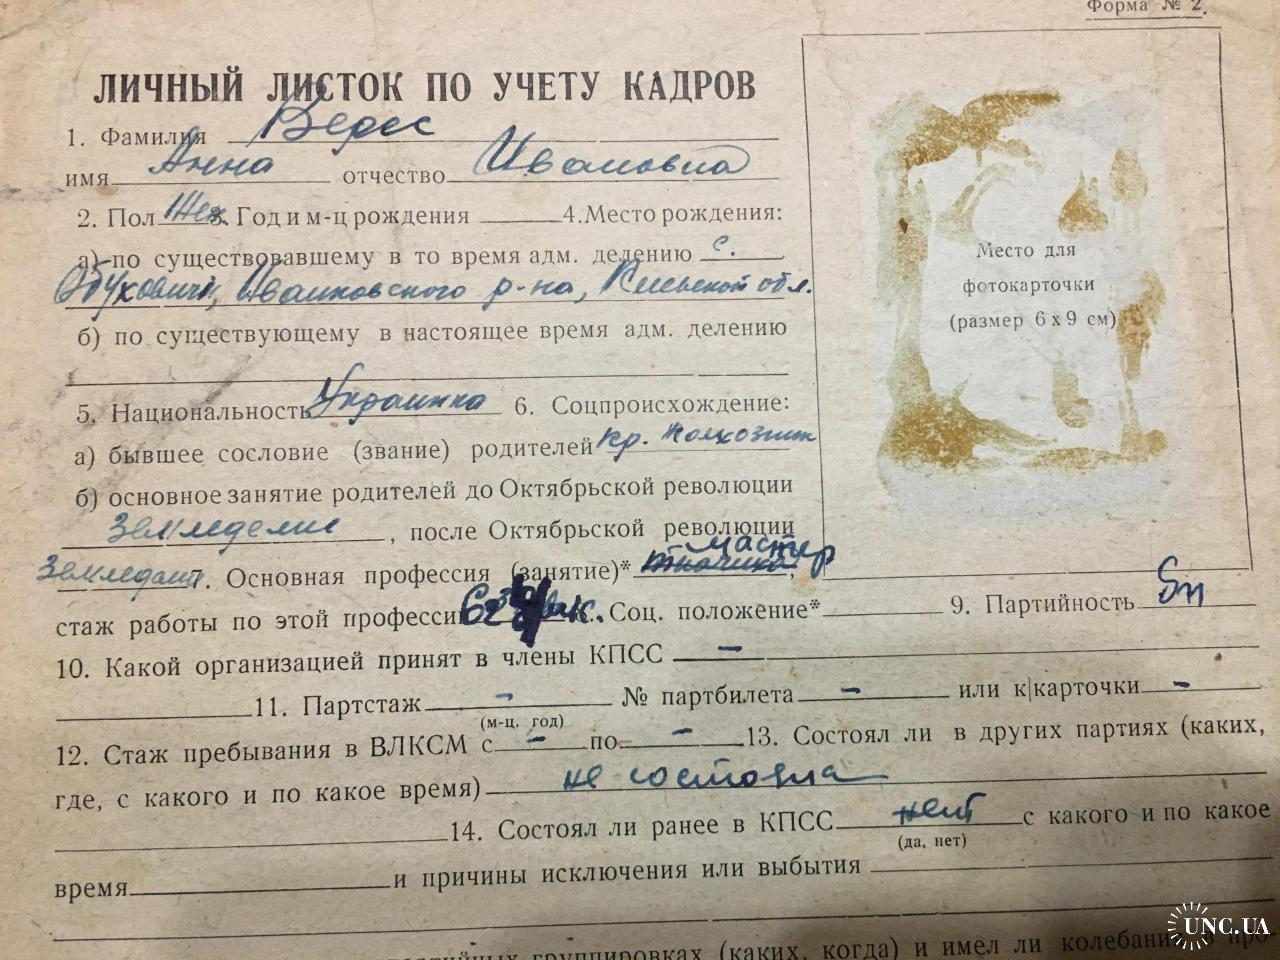 Форма № 2.
ЛИЧНЫЙ ЛИСТОК ПО УЧЕТУ КАДРОВ
1. Фамилия Верес
имя Анна отчество Ивановна
2. Пол Жен 3. Год и м-ц рождения 4. Место рождения:
а) по существовавшему в то время адм. делению с.
Обуховичи, Иванковского р-на, Киевской обл.
б) по существующему в настоящее время адм. делению
5. Национальность Украинка 6. Соцпроисхождение:
а) бывшее сословие (звание) родителей кр. колхозник
б) основное занятие родителей до Октябрьской революции
Земледелие, после Октябрьской революции
7. Основная профессия (занятие)* мастер,
стаж работы по этой профессии Соц. положение* 9. Партийность бп
10. Какой организацией принят в члены КПСС –
11. Партстаж – № партбилета – или к|карточки –
(м-ц, год)
12. Стаж пребывания в ВЛКСМ с – по – 13. Состоял ли в других партиях (каких,
где, с какого и по какое время) не состояла
14. Состоял ли ранее в КПСС нет с какого и по какое
(да, нет)
время и причины исключения или выбытия
группировках (каких, когда) и имел ли колебания в про-
Место для
фотокарточки
(размер 6 х 9 см)
UNC.UA